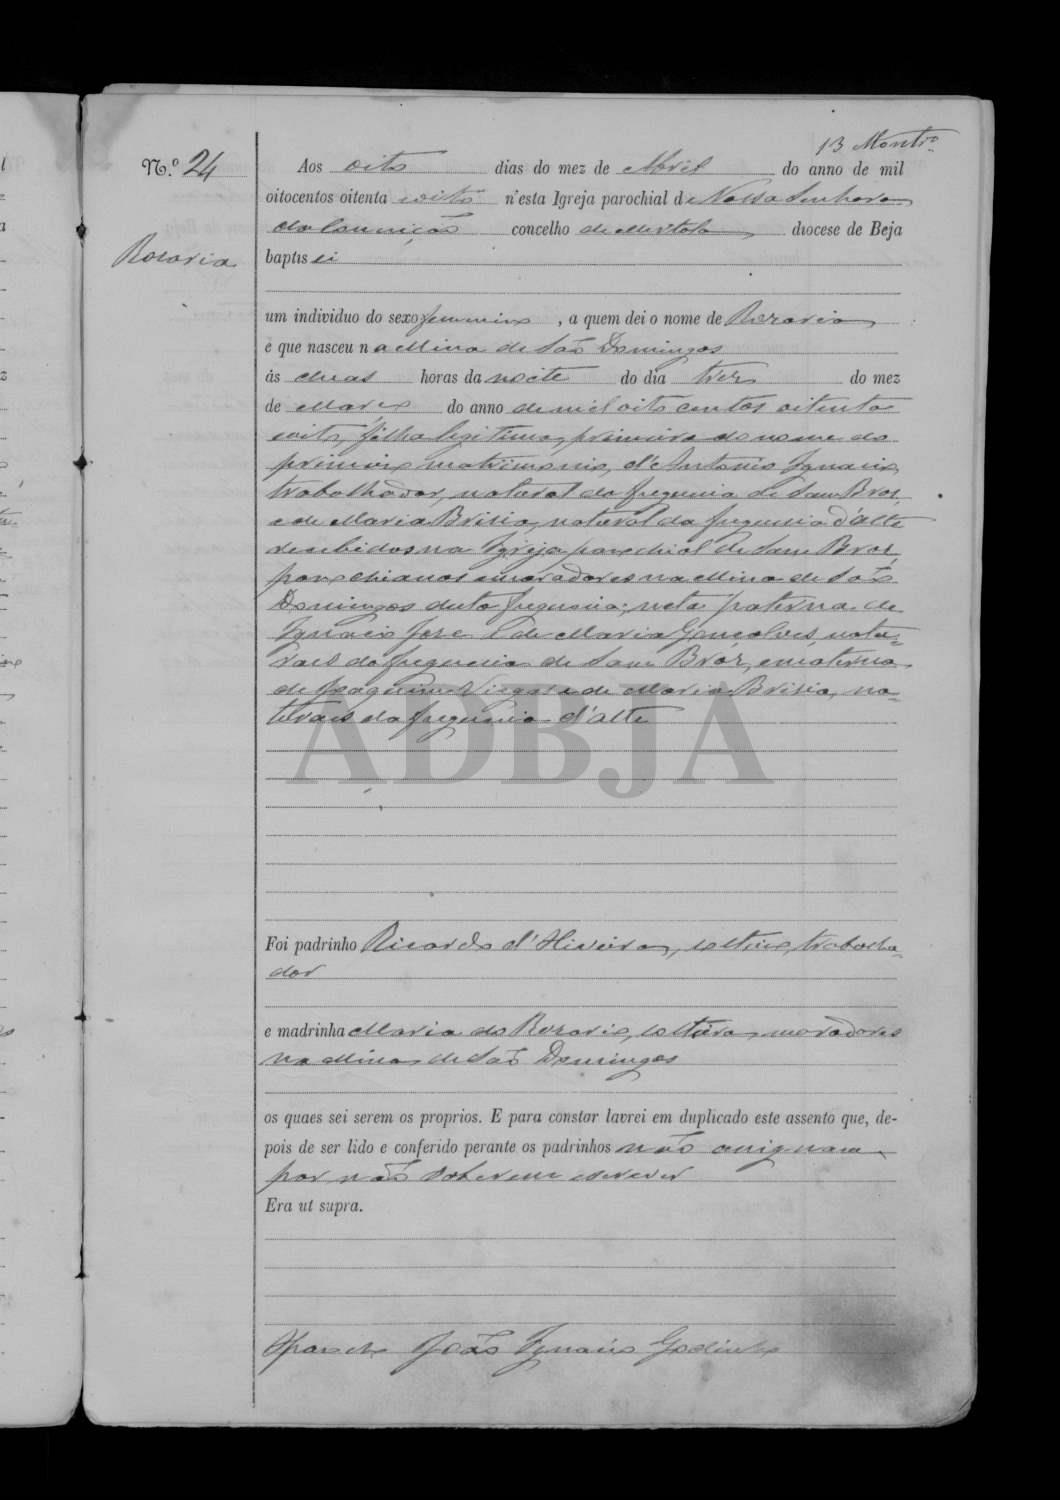 13 Montro
N.º 24
Aos oito dias do mez de Abril do anno de mil
oitocentos oitenta e oito n'esta Igreja parochial de Nossa Senhora
da Conceição concelho de Mertola diocese de Beja
Rozaria
baptisei
um individuo do sexo feminino, a quem dei o nome de Rozaria
e que nasceu na Mina de São Domingos
ás duas horas da noite do dia trez do mez
de Março do anno de mil oito centos oitenta
e oito, filha legitima, primeira do nome do
primeiro matrimonio, d'Antonio Ignacio,
trabalhador, natural da freguesia de Sam Braz,
e de Maria Brisia, natural da freguesia d'Alte
recebidos na Igreja parochial de Sam Braz,
parochianos e moradores na Mina de São
Domingos desta freguesia; neta paterna de
Ignacio José e de Maria Gonçalves, natu-
raes da freguesia de Sam Braz, e materna
de Joaquim Viegas e de Maria Brisia, na-
turaes da freguesia d'Alte
ADBJA
Foi padrinho Ricardo d'Oliveira, solteiro, trabalha-
dor
e madrinha Maria do Rozario, solteira, moradores
na Mina de São Domingos
os quaes sei serem os proprios. E para constar lavrei em duplicado este assento que, de-
pois de ser lido e conferido perante os padrinhos não assignam
por não saberem escrever
Era ut supra.
O Parocho João Ignacio Godinho